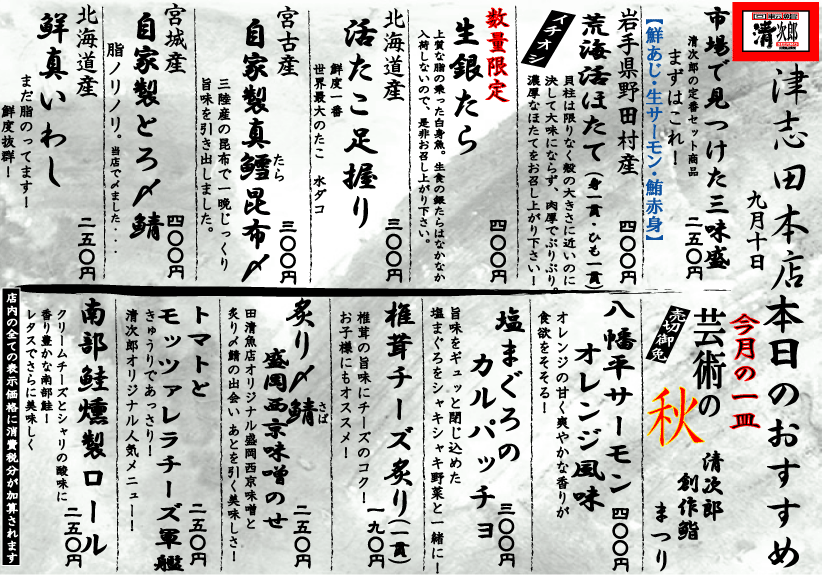 回転鮨
清次郎
津志田本店本日のおすすめ
九月十日
市場で見つけた三味盛
清次郎の定番セット商品
まずはこれ！
二五〇円
【鮮あじ・生サーモン・鮪赤身】
岩手県野田村産
荒海活ほたて（身一貫・ひも一貫）
イチオシ
貝柱は限りなく殻の大きさに近いのに
決して大味にならず、肉厚でぷりぷり。
濃厚なほたてをお召し上がり下さい！
四〇〇円
数量限定
生銀たら
上質な脂の乗った白身魚。生食の銀たらはなかなか
入荷しないので、是非お召し上がり下さい。
四〇〇円
北海道産
活たこ足握り
鮮度一番
世界最大のたこ　水ダコ
三〇〇円
宮古産
自家製真鱈昆布〆
たら
三陸産の昆布で一晩じっくり
旨味を引き出しました。
三〇〇円
宮城産
自家製とろ〆鯖
脂ノリノリ。当店で〆ました・・・
四〇〇円
北海道産
鮮真いわし
まだ脂のってます！
鮮度抜群！
二五〇円
今月の一皿
芸術の
秋
売切御免
清次郎
創作鮨
まつり
八幡平サーモン
オレンジ風味
オレンジの甘く爽やかな香りが
食欲をそそる！
四〇〇円
塩まぐろの
カルパッチョ
旨味をギュッと閉じ込めた
塩まぐろをシャキシャキ野菜と一緒に！
三〇〇円
椎茸チーズ炙り（一貫）
椎茸の旨味にチーズのコク！
お子様にもオススメ！
一九〇円
炙り〆鯖
さば
盛岡西京味噌のせ
田清魚店オリジナル盛岡西京味噌と
炙り〆鯖の出会い あとを引く美味しさ！
二五〇円
トマトと
モッツァレラチーズ軍艦
きゅうりであっさり！
清次郎オリジナル人気メニュー！
二五〇円
南部鮭燻製ロール
クリームチーズとシャリの酸味に
香り豊かな南部鮭！
レタスでさらに美味しく
二五〇円
店内の全ての表示価格に消費税分が加算されます